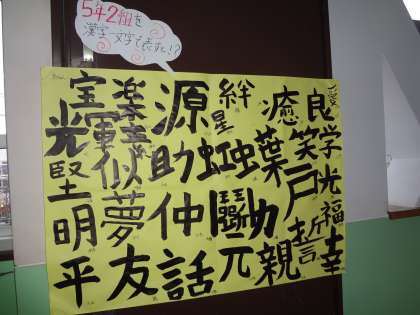 5年2組を
漢字一文字で表すと!?
学光福幸
良笑戸誓
癒葉
親
絆星虹虫
元
源助仲話
楽
似夢友
宝
光堅明平